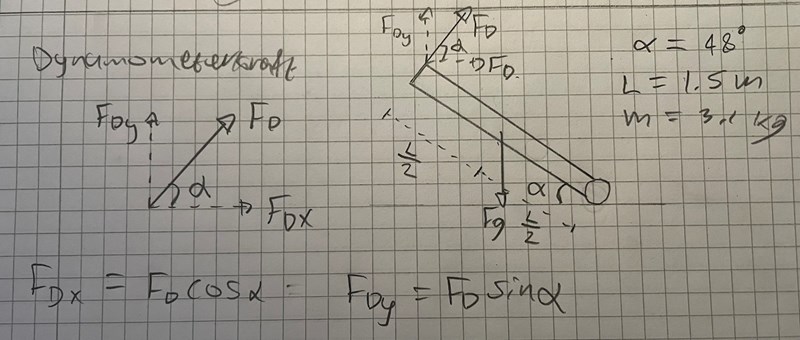 Dynamometerkraft
F_Dy F_D
α
F_Dx
F_Dy F_D
α
F_D.
L/2
Fg L/2
α
α = 48°
L = 1.5 m
m = 3.1 kg
F_Dx = F_D cosα F_Dy = F_D sinα